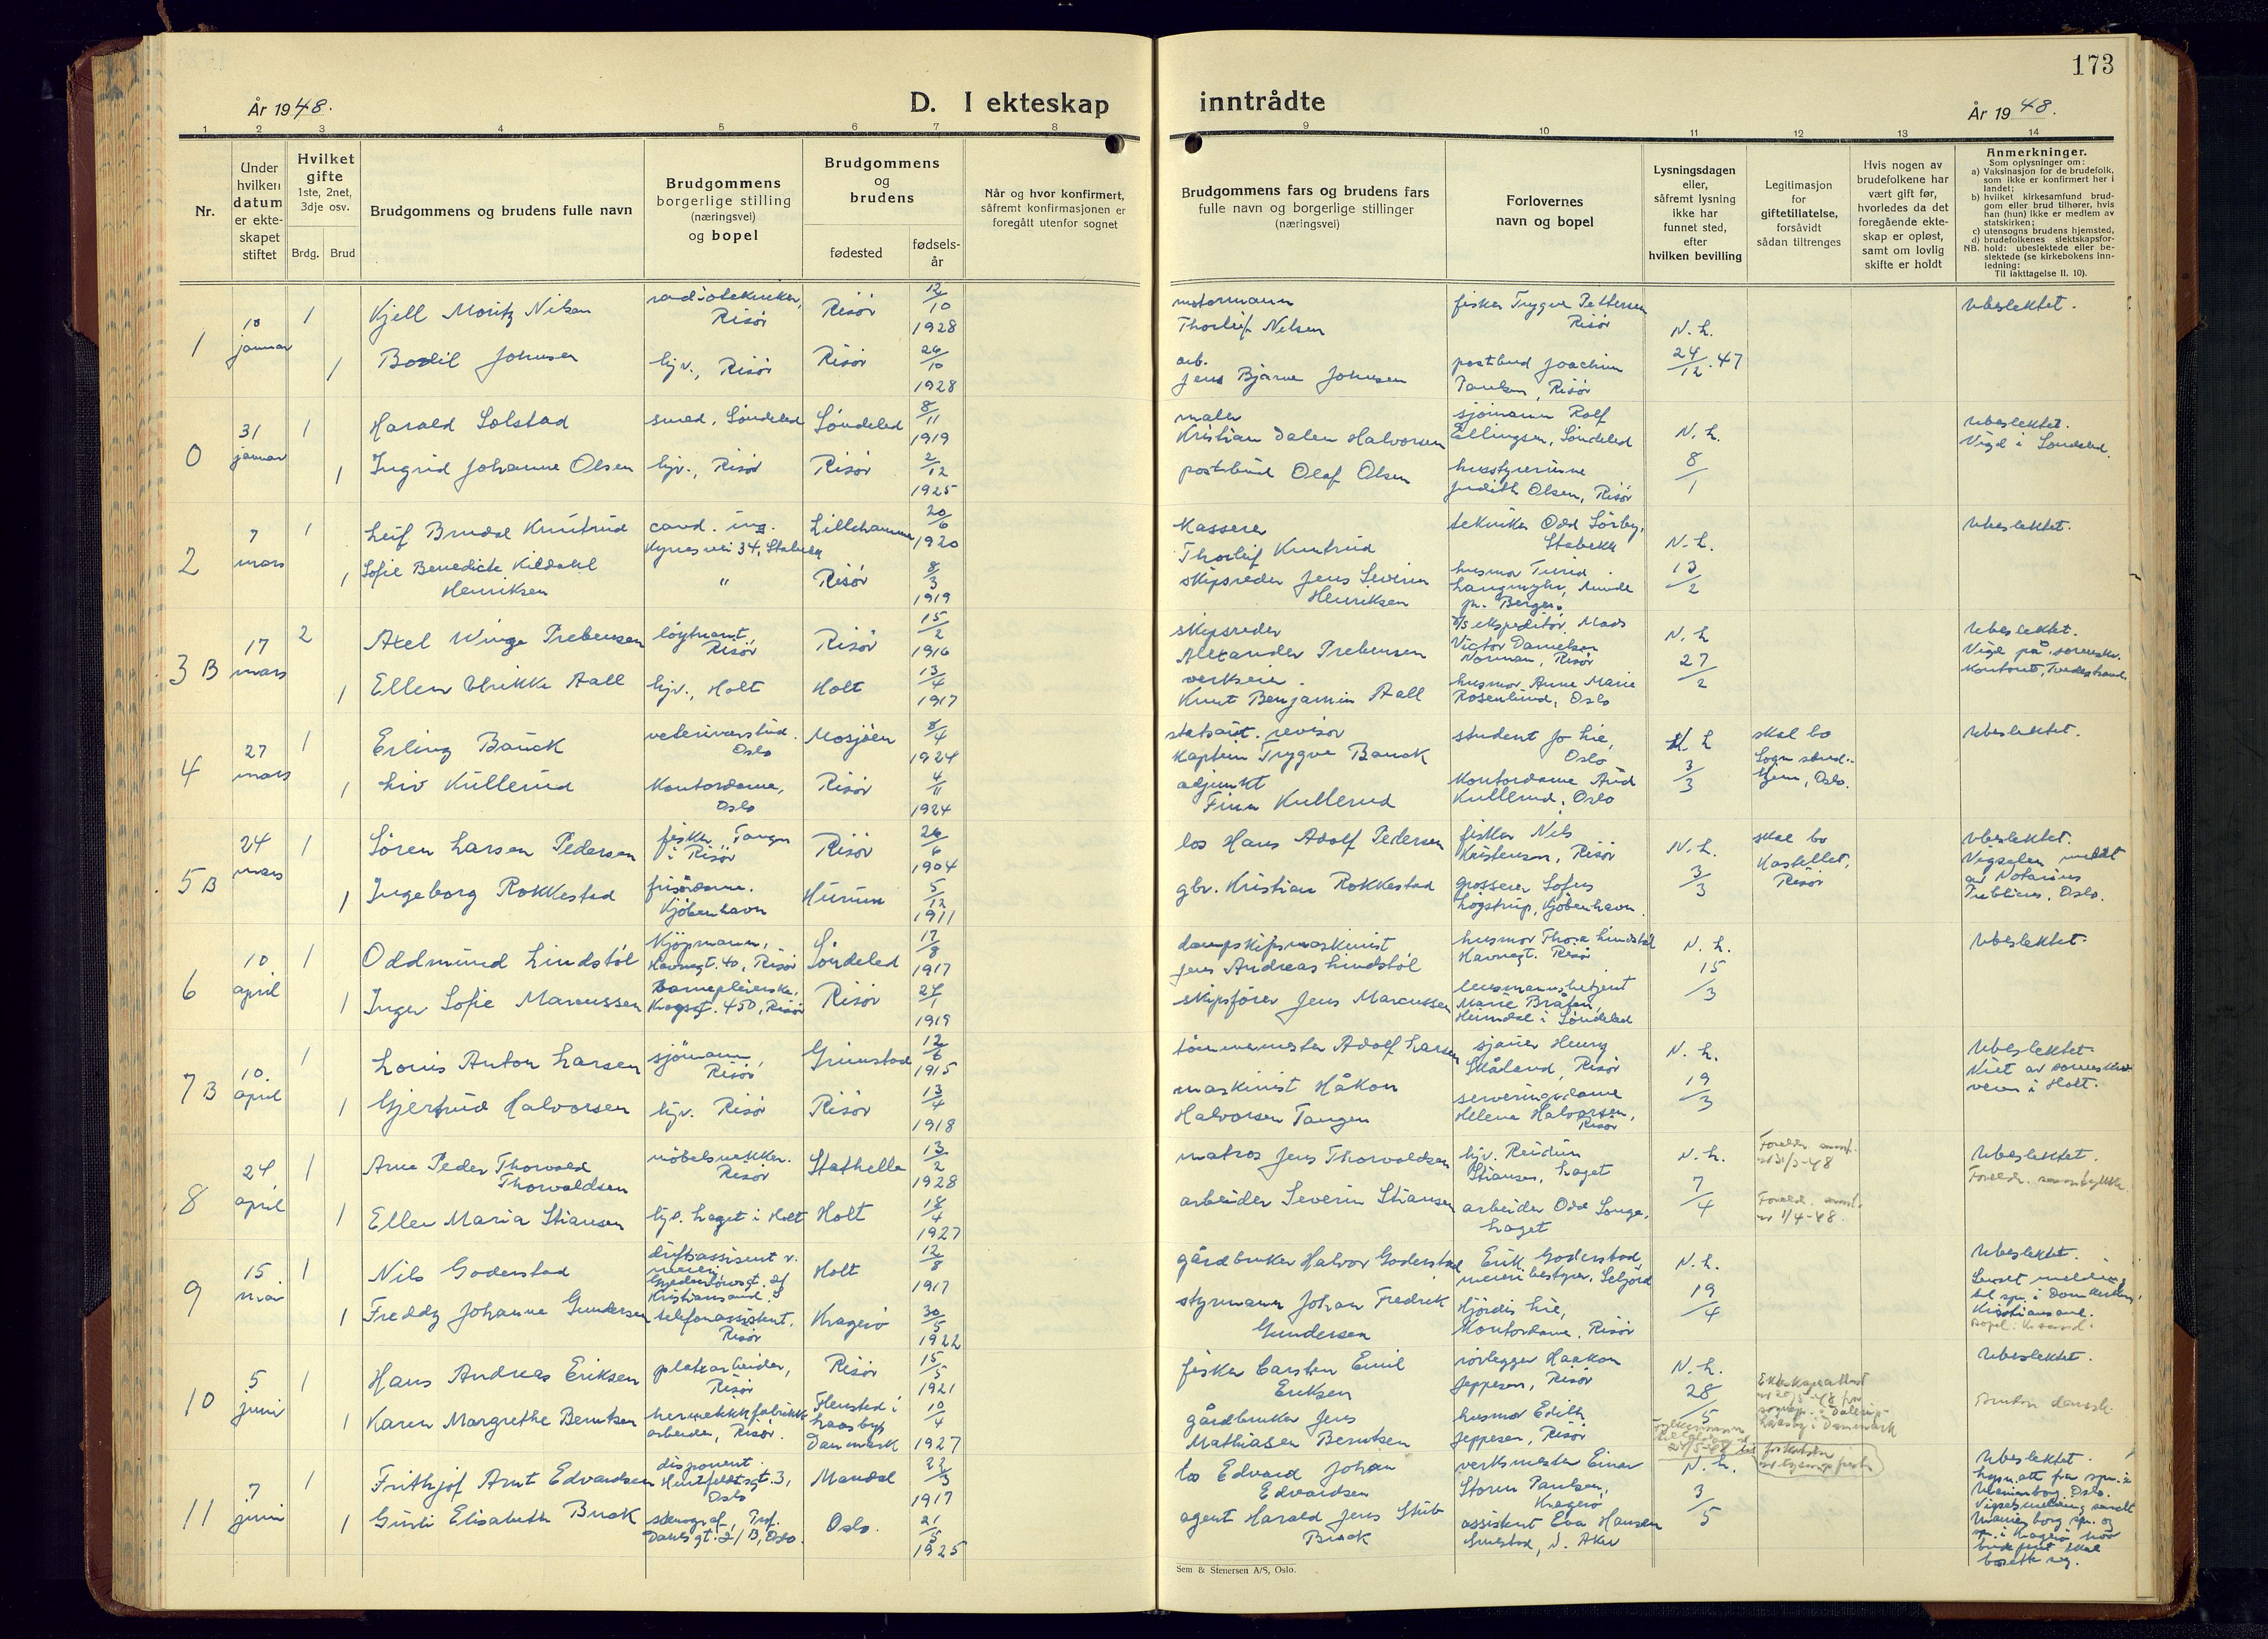 173
År 1948.
D. I ekteskap inntrådte
År 1948.
1 2 3 4 5 6 7 8 9 10 11 12 13 14
Nr.
Under hvilken datum er ekte-skapet stiftet
Hvilket gifte 1ste, 2net, 3dje osv.
Brdg. Brud
Brudgommens og brudens fulle navn
Brudgommens borgerlige stilling (næringsvei) og bopel
Brudgommens og brudens
fødested
fødsels-år
Når og hvor konfirmert, såfremt konfirmasjonen er foregått utenfor sognet
Brudgommens fars og brudens fars fulle navn og borgerlige stillinger (næringsvei)
Forlovernes navn og bopel
Lysningsdagen eller, såfremt lysning ikke har funnet sted, efter hvilken bevilling
Legitimasjon for giftetillatelse, forsåvidt sådan tiltrenges
Hvis nogen av brudefolkene har vært gift før, hvorledes da det foregående ekte-skap er opløst, samt om lovlig skifte er holdt
Anmerkninger.
Som oplysninger om:
a) Vaksinasjon for de brudefolk, som ikke er konfirmert her i landet;
b) hvilket kirkesamfund brud-gom eller brud tilhører, hvis han (hun) ikke er medlem av statskirken;
c) utensogns brudens hjemsted,
d) brudefolkenes slektskapsfor-hold: ubeslektede eller be-slektede (se kirkebokens inn-ledning:
NB.
Til iakttagelse II. 10).
1 10 januar 1 Kjell Moritz Nilsen radiotekniker, Risör Risör 12/10 1928 motormann Thorleif Nilsen fisker Trygve Pettersen Risör N. h. 24/12.47 ubeslektet.
1 Bodil Johnsen hjv., Risör Risör 26/10 1928 arb. Jens Bjarne Johnsen postbud Joachim Paulsen, Risör
0 31 januar 1 Harald Solstad smed, Söndeled Söndeled 8/11 1919 maler Kristian Dalen Halvorsen sjömann Rolf Ellingsen, Söndeled N. h. 8/1 ubeslektet. Vigd i Söndeled.
1 Ingrid Johanne Olsen hjv., Risör Risör 2/12 1925 postbud Olaf Olsen husstyrerinne Judith Olsen, Risör
2 7 mars 1 Leif Brudal Knutrud cand. ing. 34, Stabekk Lillehammer 20/6 1920 Kasserer Thorleif Knutrud tekniker Odd Sörby, Stabekk N. h. 13/2 ubeslektet.
1 Sofie Benedicte Kildahl Henriksen " Risör 8/3 1919 skipsreder Jens Severin Henriksen husmor Turid Langmyhr, pr. Bergen.
3 B 17 mars 2 Axel Winge Prebensen löytnant, Risör Risör 15/2 1916 skipsreder Alexander Prebensen D/S ekspeditör Mads Victor Danielsen Norman, Risör N. h 27/2 ubeslektet. Vigd på sorenskr. kontoret, Tvedestrand
1 Ellen Ulrikke Aall hjv., Holt Holt 13/4 1917 verkseier Knut Benjamin Aall husmor Anne Marie Rosenlund, Oslo
4 27 mars 1 Erling Bauck veterinærstud. Oslo Mosjöen 8/4 1924 statsaut. revisor Kaptein Trygve Bauck student Jo Lie, Oslo N. h 3/3 skal bo Sogn stud.-hjem, Oslo. ubeslektet.
1 Liv Kullerud Kontordame, Oslo Risör 4/11 1924 adjunkt Finn Kullerud Kontordame Aud Kullerud, Oslo
5 B 24 mars 1 Sören Larsen Pedersen fisker, Tangen i Risör Risör 26/6 1904 los Hans Adolf Pedersen fisker Nils Kristensen, Risör N. h. 3/3 skal bo Kastellet, Risör ubeslektet. Vigselen meldt av Notarius Publicus, Oslo.
1 Ingeborg Rokkestad frisördame. Kjöbenhavn Hurum 5/12 1911 gbr. Kristian Rokkestad grosserer Sofus Högstrup, Kjöbenhavn.
6 10 april 1 Oddmund Lindstöl Kjöpmann, Havnegt. 40, Risör Söndeled 17/8 1917 dampskipsmaskinist Jens Andreas Lindstöl husmor Thora Lindstöl Havnegt. Risör N. h. 15/3 ubeslektet.
1 Inger Sofie Marcussen Barnepleierske, Kragsgt. 450, Risör Risör 24/1 1919 skipsförer Jens Marcussen lensmannsbetjent Marie Bråten, Heimdal i Söndeled
7 B 10. april 1 Louis Anton Larsen sjömann, Risör Grimstad 12/6 1915 tömmermester Adolf Larsen sjauer Henry Skåland, Risör N. h. 19/3 ubeslektet. Viet av sorenskri-veren i Holt.
1 Gjertrud Halvorsen hjv. Risör Risör 13/4 1918 maskinist Håkon Halvorsen Tangen serveringsdame Helena Halvorsen, Risör
8 24 april 1 Arne Peder Thorvald Thorvaldsen möbelsnekker. Risör Stathelle 13/2 1928 matros Jens Thorvaldsen hjv. Reidun Stiansen, Laget N. h. 7/4 Foreldr. samt. av 31/3-48 ubeslektet. Foreldr. samtykke.
1 Ellen Maria Stiansen hjv. Laget i Holt Holt 18/4 1927 arbeider Severin Stiansen arbeider Odd Songe, Laget Foreld. samt. av 1/4-48.
9 15 mai 1 Nils Goderstad driftsassistent v. meieri Kristiansand. S Holt 12/8 1917 gårdbruker Halvor Goderstad Erik Goderstad, meieribestyrer, Seljord N. h. 19/4 ubeslektet. Sendt melding til spr. i Domkirken, Kristiansand.
1 Freddy Johanne Gundersen telefonassistent, Risör Kragerö 30/5 1922 styrmann Johan Fredrik Gundersen Hjördis Lie, Kontordame, Risör
10 5 juni 1 Hans Andreas Eriksen platearbeider, Risör Risör 15/5 1921 fisker Carsten Emil Eriksen rörlegger Haakon Jeppesen, Risör N. h. 28/5 ubeslektet.
1 Karen Margrethe Berntsen hermetikkfabrikk arbeider, Risör. Flensted i Laasby, Danmark 10/4 1927 gårdbruker Jens Mathiasen Berntsen husmor Edith Jeppesen, Risör Bruden dansk.
11 7 juni 1 Frithjof Arnt Edvardsen disponent. Huitfeldtsgt. 3, Oslo Mandal 22/3 1917 los Edvard Johan Edvardsen verksmester Einar Storm Paulsen, Kragerö N. h. 3/5 ubeslektet. Lysn.att fra spr. i Uranienborg, Oslo. Vigselsmelding sendt Uranienborg spr. og spr. i Kragerö, hvor brudeparet skal bosette seg.
1 Gurli Elisabeth Buck stenograf, Prof. Dahlsgt. 21 B, Oslo. Oslo. 21/5 1925 agent Harald Jens Stub Buck assistent Eva Hansen Smestad, V. Aker
Sem & Stenersen A/S, Oslo.